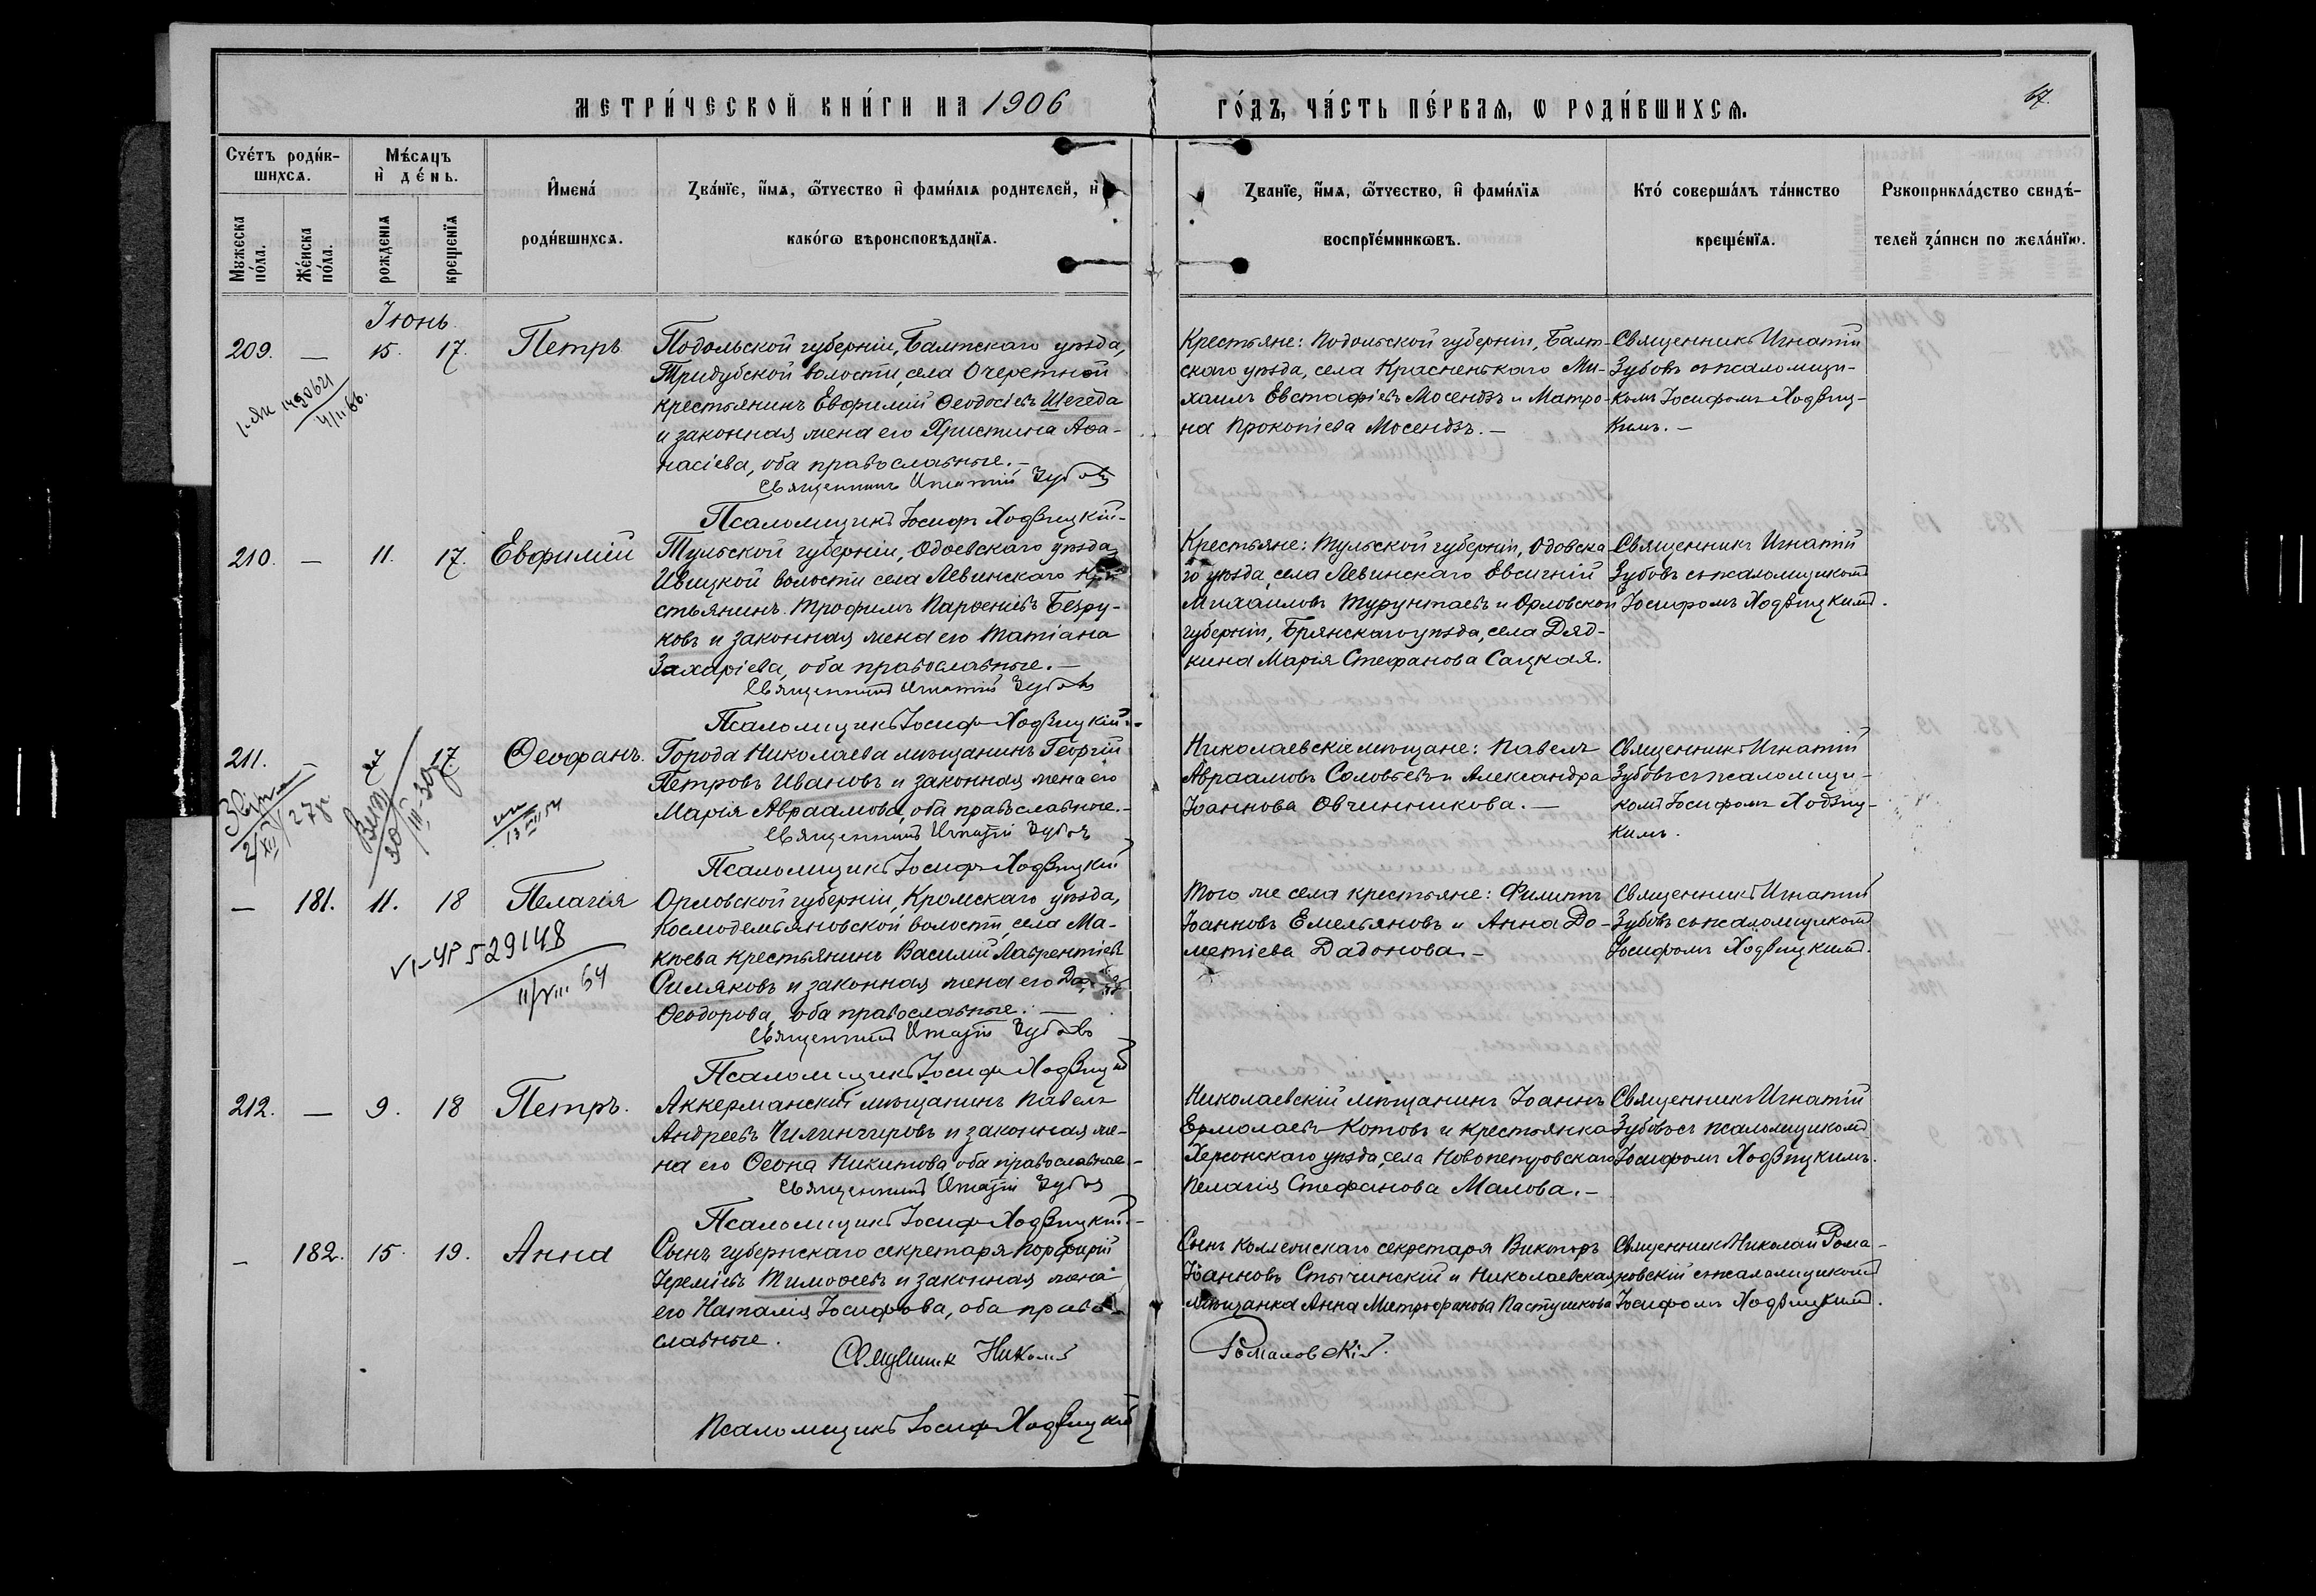 МЕТРИ́ЧЕСКОЙ КНИ́ГИ НА 1906
ГО́ДЪ, ЧА́СТЬ ПЕ́РВАѦ, Ѡ РОДИ́ВШИХСѦ.
67.
Счétъ роди́в-
шихсѧ.
Мѣ́сѧцъ
и҆ де́нь.
Мꙋжеска
по́ла.
Же́нска
по́ла.
рожденїѧ
крещенїѧ
И҆мена́
роди́вшихсѧ.
Зва́нїе, и҆́мѧ, ѻ҆́тчество и҆ фами́лїѧ родителей, и҆
како́гѡ вѣроисповѣданїѧ.
Зва́нїе, и҆́мѧ, ѻ҆́тчество, и҆ фами́лїѧ
воспрїе́мникѡвъ.
Кто́ соверша́лъ та́инство
креще́нїѧ.
Рꙋкоприкла́дство свидѣ́-
телей за́писи по жела́нїю.
Іюнь.
209. — 15. 17. Петръ
Подольской губерніи, Балтскаго уѣзда,
Тридубской волости, села Очеретной
крестьянинъ Евфимій Ѳеодосіевъ Шегеда
и законная жена его Христина Аѳа-
насіева, оба православные. —
Священникъ Игнатій Зубовъ
Псаломщикъ Іосифъ Ходзицкій
Крестьяне: Подольской губерніи, Балт-
скаго уѣзда, села Красненькаго Ми-
хаилъ Евстафіевъ Мосендзъ и Матро-
на Прокопіева Мосендзъ. —
Священникъ Игнатій
Зубовъ съ псаломщи-
комъ Іосифомъ Ходзиц-
кимъ. —
4/II 66.
210. — 11. 17. Евфимій
Тульской губерніи, Одоевскаго уѣзда
Ивицкой волости села Левинскаго кре-
стьянинъ Трофимъ Парѳеніевъ Безру-
ковъ и законная жена его Татіана
Захаріева, оба православные. —
Священникъ Игнатій Зубовъ
Псаломщикъ Іосифъ Ходзицкій
Крестьяне: Тульской губерніи, Одовска
го уѣзда, села Левинскаго Евсигній
Михаиловъ Турунтаевъ и Орловской
губерніи, Брянскаго уѣзда, села Дяд-
кина Марія Стефанова Сацкая.
Священникъ Игнатій
Зубовъ съ псаломщикомъ
Іосифомъ Ходзицкимъ.
211. — 17. Ѳеофанъ.
Города Николаева мѣщанинъ Георгій
Петровъ Ивановъ и законная жена его
Марія Авраамова, оба православные. —
Священникъ Игнатій Зубовъ
Псаломщикъ Іосифъ Ходзицкій
Николаевскіе мѣщане: Павелъ
Авраамовъ Соловьевъ и Александра
Іоаннова Овчинникова. —
Священникъ Игнатій
Зубовъ съ псаломщи-
комъ Іосифомъ Ходзиц-
кимъ.
— 181. 11. 18 Пелагія
Орловской губерніи, Кромскаго уѣзда,
Космодемьяновской волости, села Ма-
кѣева крестьянинъ Василій Лаврентіевъ
Симяковъ и законная жена его
Ѳеодорова, оба православные. —
Священникъ Игнатій Зубовъ
Псаломщикъ Іосифъ Ходзицкій
Того же села крестьяне: Филиппъ
Іоанновъ Емельяновъ и Анна До-
метіева Дадонова. —
Священникъ Игнатій
Зубовъ съ псаломщикомъ
Іосифомъ Ходзицкимъ.
529148
11/VIII 64
212. — 9. 18 Петръ.
Аккерманскій мѣщанинъ Павелъ
Андреевъ Чилингировъ и законная же-
на его Ѳеона Никитова, оба православные. —
Священникъ Игнатій Зубовъ
Псаломщикъ Іосифъ Ходзицкій
Николаевскій мѣщанинъ Іоаннъ
Ермолаевъ Котовъ и крестьянка
Херсонскаго уѣзда, села Новопетровскаго
Пелагія Стефанова Малова. —
Священникъ Игнатій
Зубовъ съ псаломщикомъ
Іосифомъ Ходзицкимъ.
— 182. 15. 19. Анна
Сынъ губернскаго секретаря Порфирій
Іереміевъ Тимоѳеевъ и законная жена
его Наталія Іосифова, оба право-
славные.
Священникъ Николай
Романовскій.
Псаломщикъ Іосифъ Ходзицкій
Сынъ коллежскаго секретаря Викторъ
Іоанновъ Стычинскій и Николаевская
мѣщанка Анна Митрофанова Пастушкова
Священникъ Николай Рома-
новскій съ псаломщикомъ
Іосифомъ Ходзицкимъ.